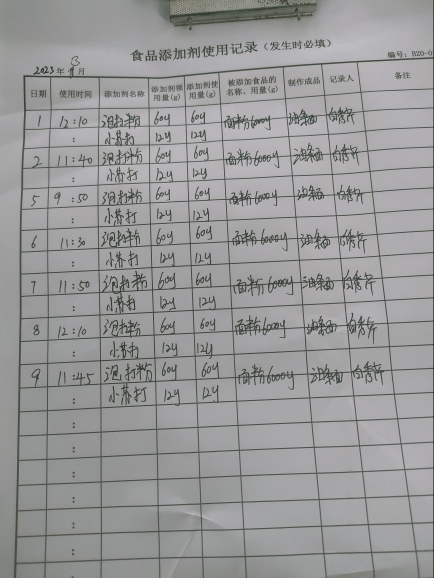 食品添加剂使用记录（发生时必填）
编号：B20-0
2023年 3 月
日期 使用时间 添加剂名称 添加剂领用量(g) 添加剂使用量(g) 被添加食品的名称、用量(g) 制作成品 记录人 备注
1 12:10 泡打粉 60g 60g 面粉6000g 油条面 白秀芹
: 小苏打 12g 12g
2 11:40 泡打粉 60g 60g 面粉6000g 油条面 白秀芹
: 小苏打 12g 12g
5 9:50 泡打粉 60g 60g 面粉6000g 油条面 白秀芹
: 小苏打 12g 12g
6 11:30 泡打粉 60g 60g 面粉6000g 油条面 白秀芹
: 小苏打 12g 12g
7 11:50 泡打粉 60g 60g 面粉6000g 油条面 白秀芹
: 小苏打 12g 12g
8 12:10 泡打粉 60g 60g 面粉6000g 油条面 白秀芹
: 小苏打 12g 12g
9 11:45 泡打粉 60g 60g 面粉6000g 油条面 白秀芹
: 小苏打 12g 12g
:
:
:
:
:
: